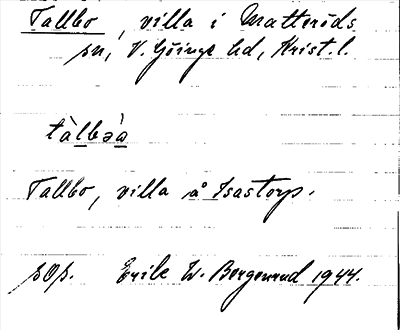 Tallbo, villa i Matteröds
sn, V. Göinge hd, Krist. l.
tàlbəà
Tallbo, villa å Isastorp.
pop. Erik W. Bergenrud 1944.